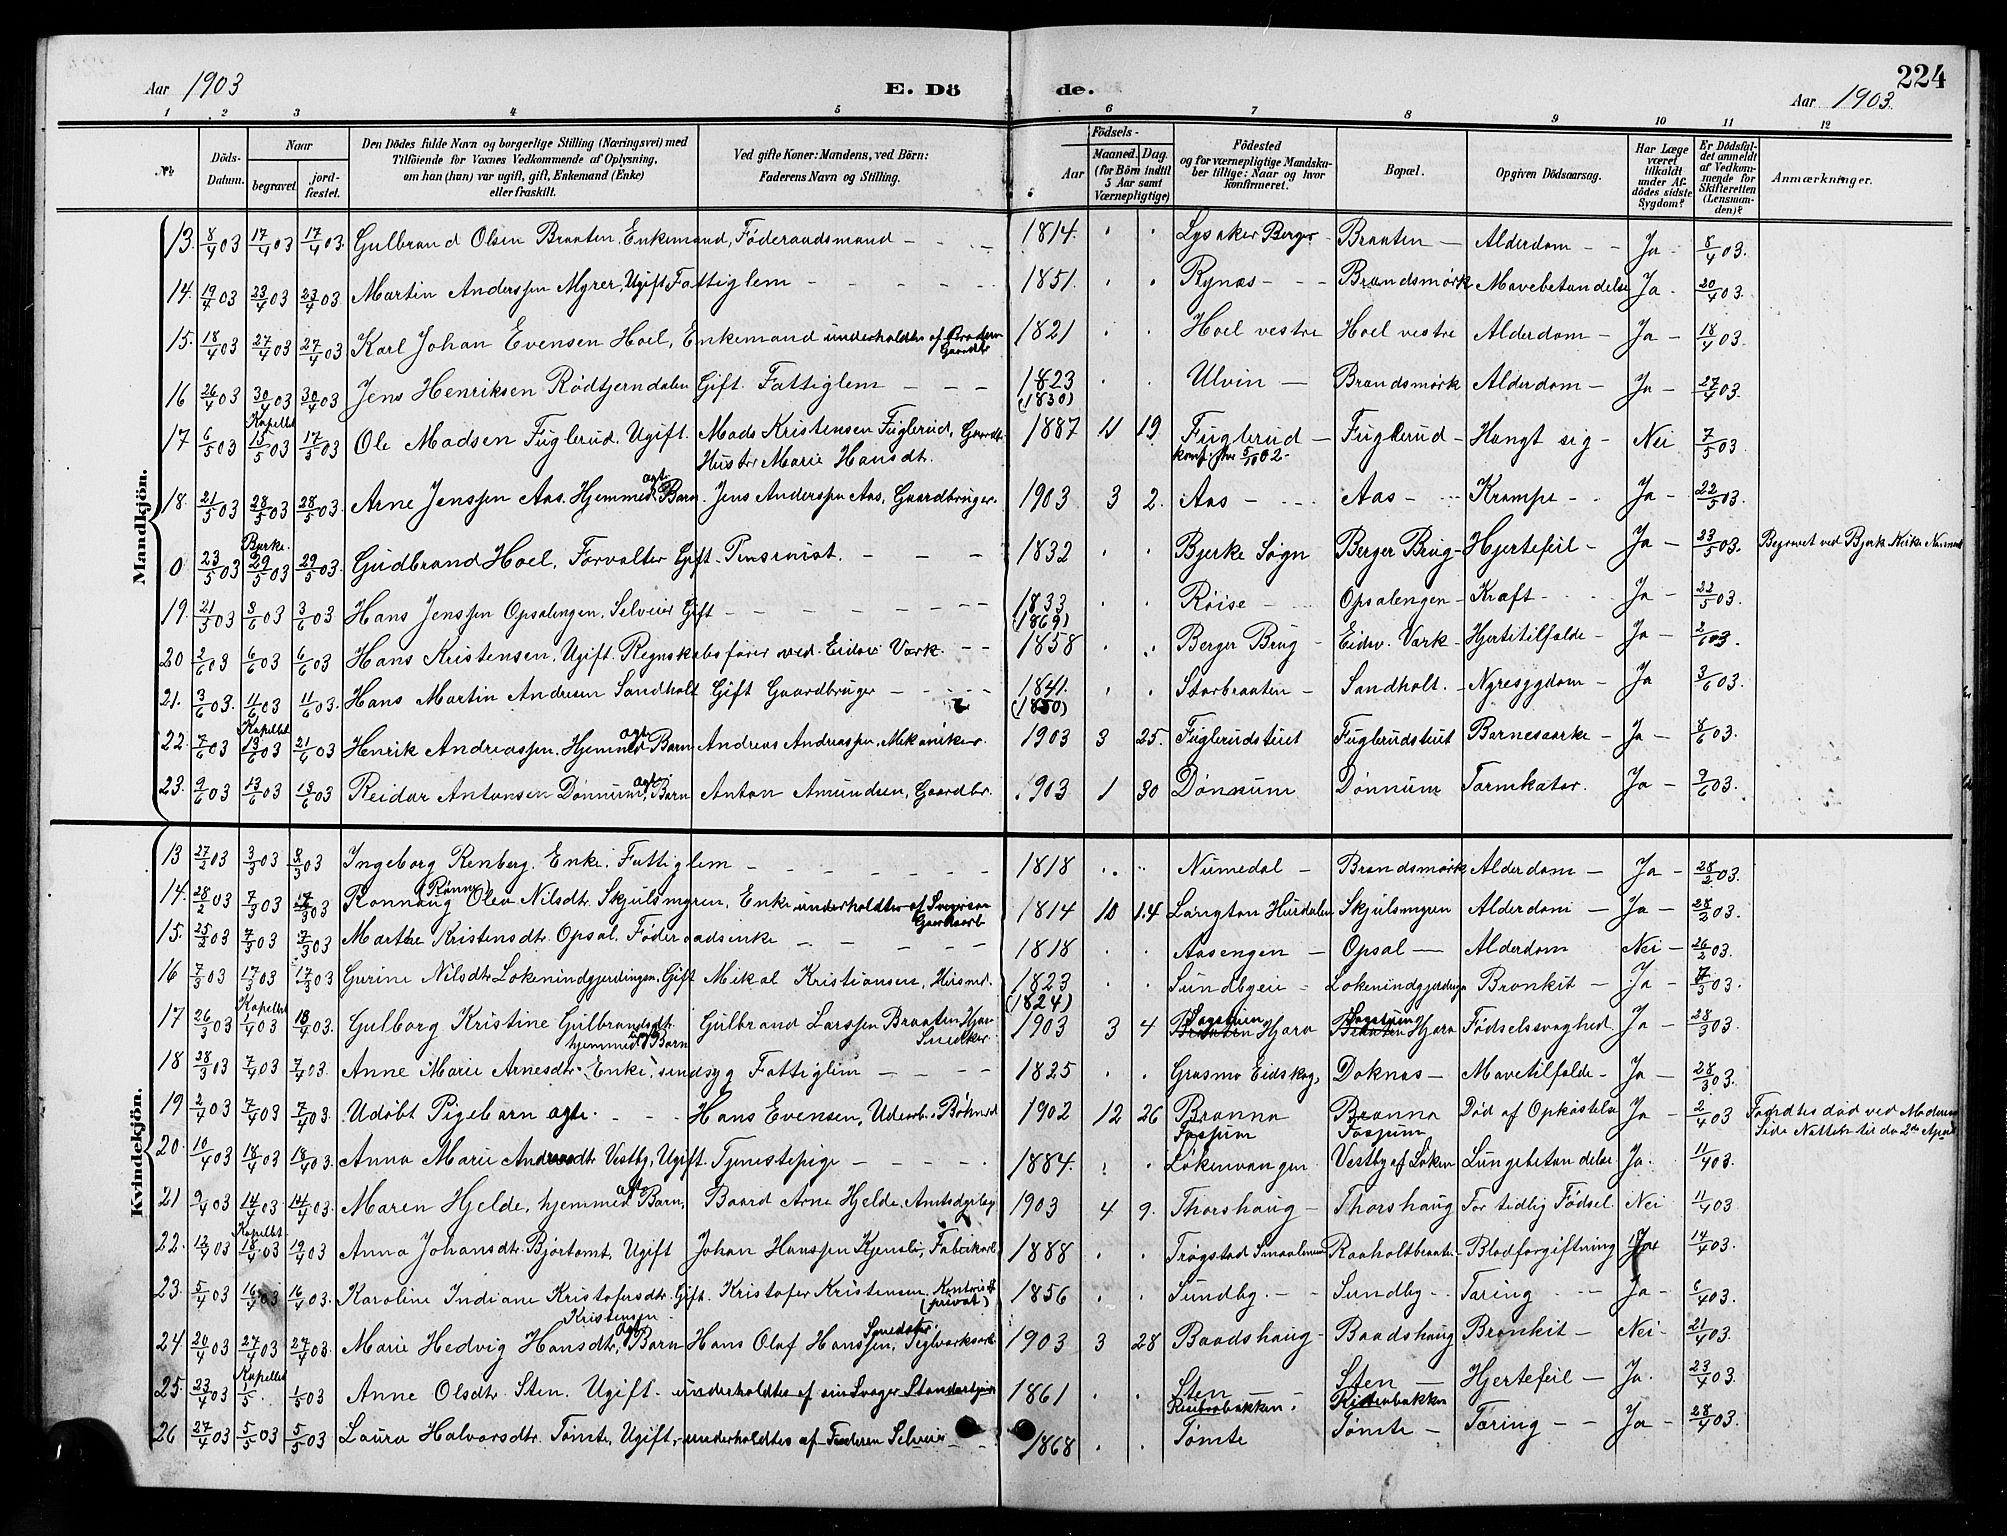 224
Aar 1903
E. Dö de.
Aar 1903.
1 2 3 4 5 6 7 8 9 10 11 12
№
Döds-Datum.
Naar
begravet
jordfæstet.
Den Dödes fulde Navn og borgerlige Stilling (Næringsvei) med
Tilföiende for Voxnes Vedkommende af Oplysning,
om han (hun) var ugift, gift, Enkemand (Enke)
eller fraskilt.
Ved gifte Koner: Mandens, ved Börn:
Faderens Navn og Stilling.
Födsels-
Aar
Maaned. Dag.
(for Börn indtil
5 Aar samt
Værnepligtige)
Födested
og for værnepligtige Mandskaber tillige: Naar og hvor
konfirmeret.
Bopæl.
Opgiven Dödsaarsag.
Har Læge
været
tilkaldt
under Afdödes sidste
Sygdom?
Er Dödsfaldet anmeldt
af Vedkommende for
Skifteretten
(Lensmanden)?
Anmærkninger.
Mandkjön.
13. 8/4 03 17/4 03 17/4 03. Gulbrand Olsen Braaten, Enkemand, Föderaadsmand 1814. Lysaker Berger Braaten Alderdom Ja 8/4 03.
14. 19/4 03 23/4 03 23/4 03 Martin Anderssen Myrer, Ugift, Fattiglem 1851. Rynæs Brandsmørk Mavebetændelse Ja 20/4 03.
15. 18/4 03 27/4 03 27/4 03 Karl Johan Evensen Hoel, Enkemand underholdtes af Broderen Gaardbr 1821 Hoel vestre Hoel vestre Alderdom Ja 18/4 03.
16 26/4 03 30/4 03 30/4 03 Jens Henriksen Rödtjerndalen Gift. Fattiglem 1823 (1830) Ulvin Brandsmørk Alderdom Ja 27/4 03.
17 6/5 03 Kapellet 15/5 03 17/5 03 Ole Madsen Fuglerud. Ugift. Mads Kristensen Fuglerud, Gaardbr. Hustr Marie Hansdtr. 1887 11 19. Fuglerud konf. 5/10 02 Fuglerud Hængt sig Nei 7/5 03
18. 21/5 03 28/5 03 28/5 03 Arne Jenssen Aas. Hjemmed. agt Barn. Jens Anderssen Aas, Gaardbruger 1903 3 2. Aas Aas Krampe Ja 22/5 03.
0 23/5 03 Bjerke. 29/5 03 29/5 03. Gudbrand Hoel, Forvalter Gift. Pensionist. 1832 Bjerke Sogn Berger Brug Hjertefeil Ja 23/5 03. Begravet ved Bjerke Kirke
19. 21/5 03 3/6 03 3/6 03 Hans Jenssen Opsalengen. Selveier Gift 1833 (1869) Röise Opsalengen Kræft Ja 22/5 03.
20 2/6 03 6/6 03 6/6 03 Hans Kristensen, Ugift. Regnskabsfører ved Eidsv. Værk 1858 Berger Brug Eidsv. Værk Hjertetilfælde Ja 2/6 03.
21. 3/6 03. 11/6 03 11/6 03. Hans Martin Andresen Sandholt Gift Gaardbruger 1841. (1850) Storbraaten Sandholt. Nyresygdom Ja 3/6 03.
22. 7/6 03 Kapellet 13/6 03 21/6 03 Henrik Andreassen. Hjemmed agt Barn Andreas Andreassen, Mekaniker. 1903 3 25. Fuglerudstuet Fuglerudstuet Barneskærke Ja 8/6 03.
23. 9/6 03 13/6 03 13/6 03 Reidar Antonsen Dønnum, agt Barn Anton Amundsen, Gaardbr. 1903 1 30 Dønnum Dønnum Tarmkatar. Ja 9/6 03.
Kvindekjön.
13 27/2 03 3/3 03 8/3 03 Ingeborg Renberg. Enke. Fattiglem 1818 Numedal Brandsmørk Alderdom Ja 28/2 03.
14. 28/2 03 7/3 03 17/3 03 Ronnaug (Rønne) Olea Nilsdtr. Skjulsmyren, Enke underholdtes af Svigersøn Gaardarb 1814 10 14 Langton Hurdalen Skjulsmyren Alderdom Ja 28/2 03.
15. 25/2 03 7/3 03 7/3 03 Marthe Kristensdtr. Opsal. Föderaadsenke 1818 Aasengen Opsal Alderdom Nei 26/2 03.
16 7/3 03 17/3 03 17/3 03 Gurine Nilsdtr Lokenindgjerdingen, Gift Mikal Kristiansen, Husmd. 1823 (1824) Sundbyeie Lokenindgjerdingen Bronkit Ja 8/3 03.
17 26/3 03 Kapellet 1/4 03 18/4 03. Gulborg Kristine Gulbrandsdtr. hjemmed Barn Gulbrand Larssen Braaten Hjera Snedker. 1903 3 4 Sagstuen Hjera Sagstuen Hjera Födselssvaghed Ja 28/3 03.
18 28/3 03 7/4 03 7/4 03. Anne Marie Arnesdtr. Enke, sindsyg Fattiglem 1825 Grasmo Eidskog, Doknæs Mavetilfælde Ja 28/3 03.
19 2/4 03 7/4 03 7/4 03. Udøbt Pigebarn agte. Hans Evensen, 1902 12 26 Brænna Fossum Brænna Fossum Död af Opkastelse Ja 2/4 03 Fandtes død ved Moderens Side Natten til den 2den April
20. 10/4 03 18/4 03 18/4 03. Anna Marie Andreasdtr Vestby, Ugift Tjenestepige 1884. Lökenvangen Vestby af Løken Lungebetændelse Ja. 11/4 03.
21 9/4 03 14/4 03 14/4 03. Maren Hjelde, hjemmed agt Barn, Baard Arne Hjelde, Amtsdyrlæg 1903 4 9. Thorshaug Thorshaug For tidlig Födsel Nei 11/4 03
22. 12/4 03 Kapellet 18/4 03 19/4 03 Anna Johansdtr. Bjørtomt, Ugift Johan Hanssen Kjensli, Fabrikarb 1888 Trøgstad Smaalenene Raaholtbraaten Blodforgiftning Ja 14/4 03.
23. 5/4 03 16/4 03 16/4 03. Karoline Indiane Kristofersdtr. Gift. Kristofer Kristensen. Kontorist (privat) 1856 Sundby. Sundby Tæring Ja 6/4 03.
24. 20/4 03 27/4 03 27/4 03 Marie Hedvig Kristenssen Hansdtr, agt Barn Hans Olaf Hanssen, Teglværksarb 1903 3 28 Baadshaug Baadshaug Bronkit Nei 21/4 03.
25. 23/4 03 Kapellet 1/5 1/5 03 Anne Olsdtr. Sten. Ugift. underholdtes af sin Svoger 1861 Sten Sten Hjertefeil Ja. 23/4 03.
26 27/4 03 5/5 03 5/5 03 Laura Halvorsdtr. Tömte, Ugift, underholdtes af Faderen Selveier 1868 Tömte Tömte Tæring Ja 28/4 03.